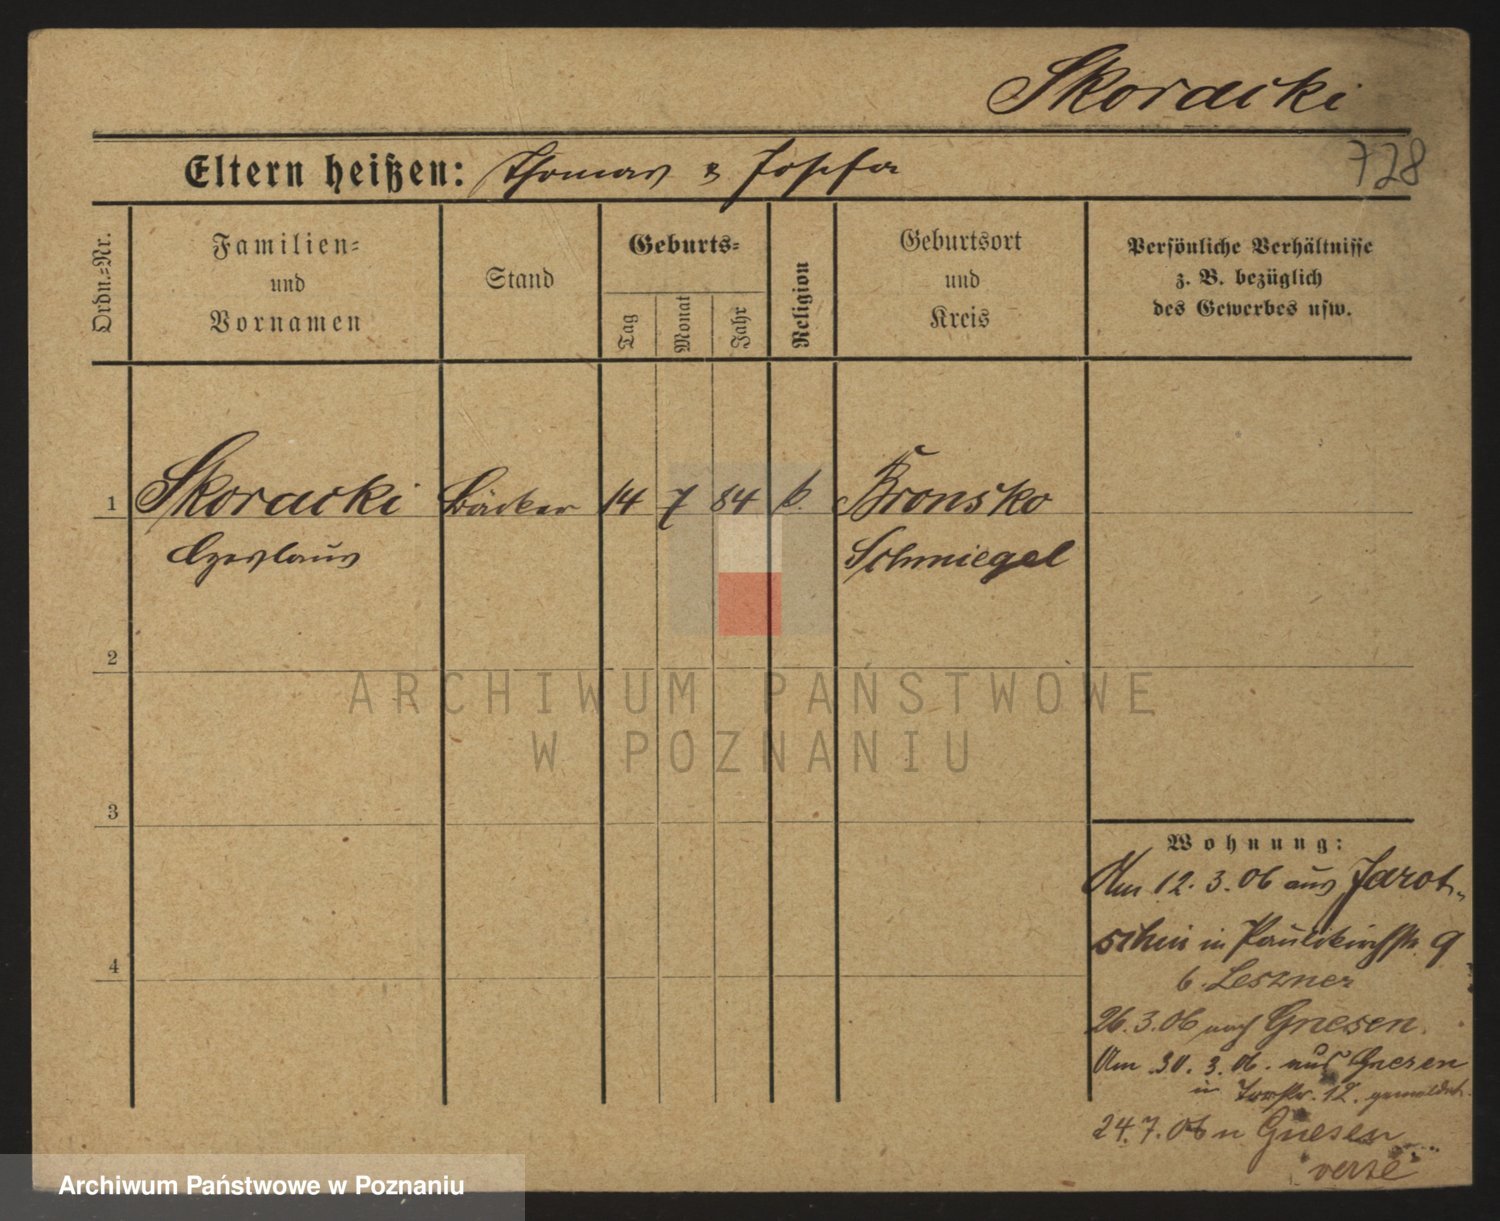 Skoracki
728
Eltern heißen: Thomas & Josefa
Ordn.=Nr.
Familien=
und
Vornamen
Stand
Geburts=
Tag
Monat
Jahr
Religion
Geburtsort
und
Kreis
Persönliche Verhältnisse
z. B. bezüglich
des Gewerbes usw.
1 Skoracki Bäcker 14 7 84 k. Bronsko
Czeslaus Schmiegel
2
3
4
Wohnung:
Am 12.3.06 aus Jarot-
schin in Paulikirchstr. 9
b. Leszner
26.3.06 nach Gnesen.
Am 30.3.06. aus Gnesen
in 12. gemeldet.
24.7.06 n Gnesen
verzo
ARCHIWUM PAŃSTWOWE
W POZNANIU
Archiwum Państwowe w Poznaniu